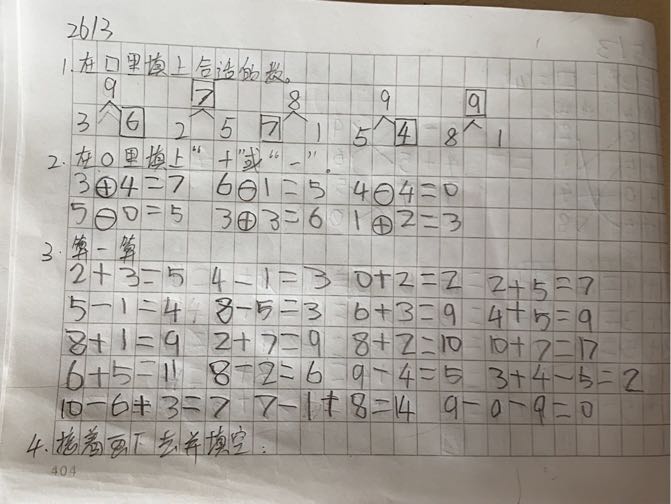 26/3
1. 在口里填上合适的数。
9 7 8 9 9
3 6 2 5 7 1 5 4 8 1
2. 在O里填上“+”或“-”.
3⊕4=7 6⊖1=5 4⊖4=0
5⊖0=5 3⊕3=6 1⊕2=3
3. 算一算
2+3=5 4-1=3 0+2=2 2+5=7
5-1=4 8-5=3 6+3=9 4+5=9
8+1=9 2+7=9 8+2=10 10+7=17
6+5=11 8-2=6 9-4=5 3+4-5=2
10-6+3=7 7-1+8=14 9-0-9=0
4. 接着画下去并填空:
404